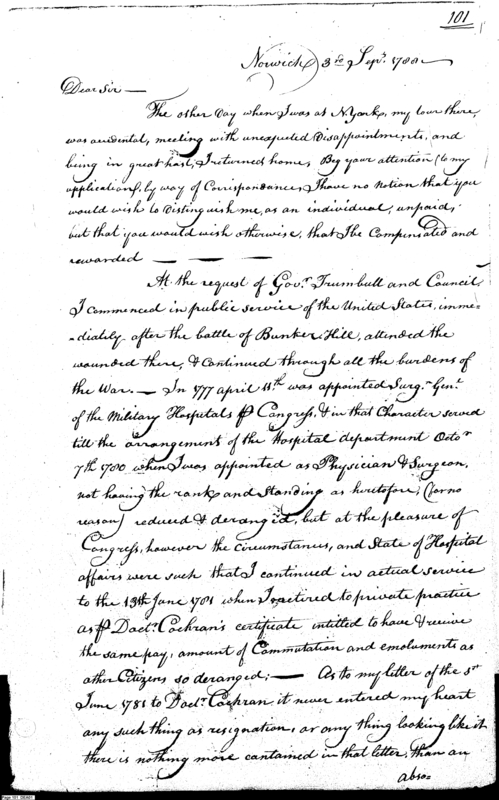 101
Norwich 3rd Sepr. 1788
Dear Sir —
The other day when I was at N. York, my tour there,
was accidental, meeting with unexpected Disappointments, and
being in great hast, I returned home, Beg your attention (to my
application) by way of Correspondance, I have no notion that you
would wish to Distinguish me, as an individual, unpaid;
but that you would wish otherwise, that I be Compensated and
rewarded — — —
At the request of Govr. Trumbull and Council,
I commenced in public service of the United States, imme=
=diately after the battle of Bunker Hill, attended the
wounded there, & Continued through all the burdens of
the War. — In 1777 april 11th was appointed Surgn. Genl.
of the Military Hospitals ⅌ Congress, & in that Character served
till the arrangement of the Hospital department Octor
7th 1780 when I was appointed as Physician & Surgeon,
not having the rank and Standing as heretofore, (for no
reason) reduced & derangid, but at the pleasure of
Congress, however the circumstances, and State of Hospital
affairs were such that I continued in actual service
to the 13th June 1781 when I retired to private practice
as ⅌ Doctr. Cochran's certificate intitled to have & receive
the same pay, amount of Commutation and emoluments as
other Citizens so deranged; — As to my letter of the
June 1781 to Doctr. Cochran, it never entered my heart
any such thing as resignation, or any thing looking like it
there is nothing more contained in that letter, than an
abso=